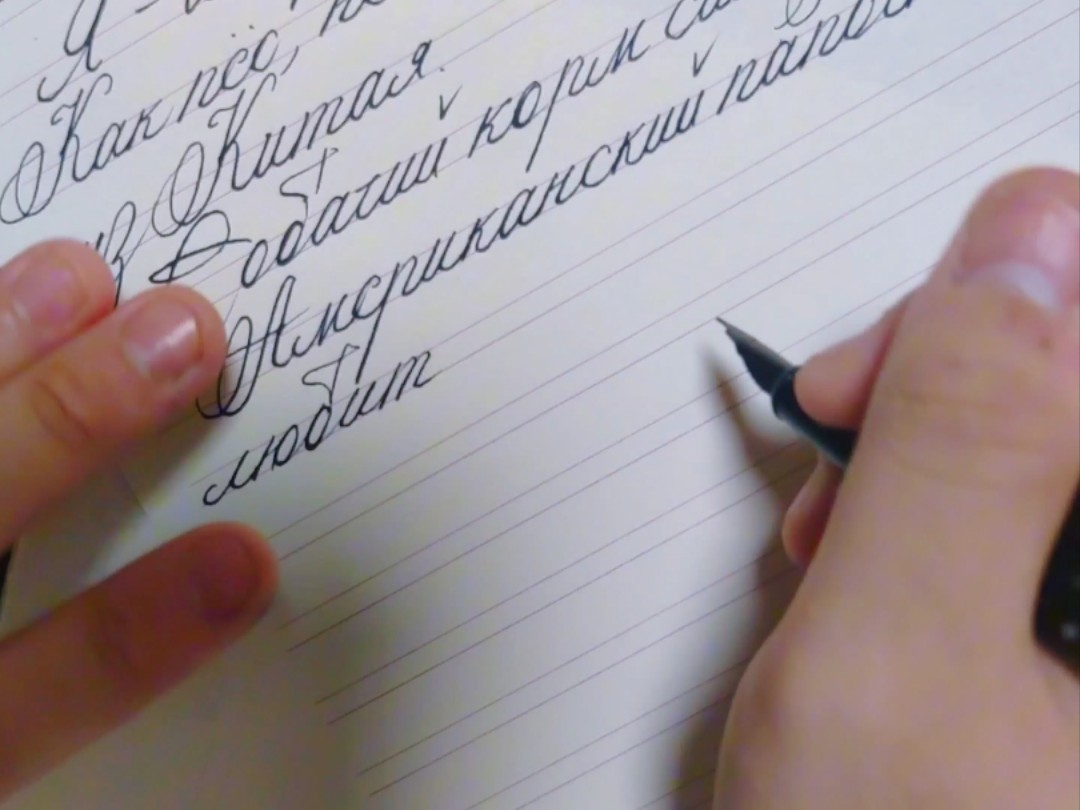 Я -
Как псс,
из Китая.
Собачий корм
Американский
любит